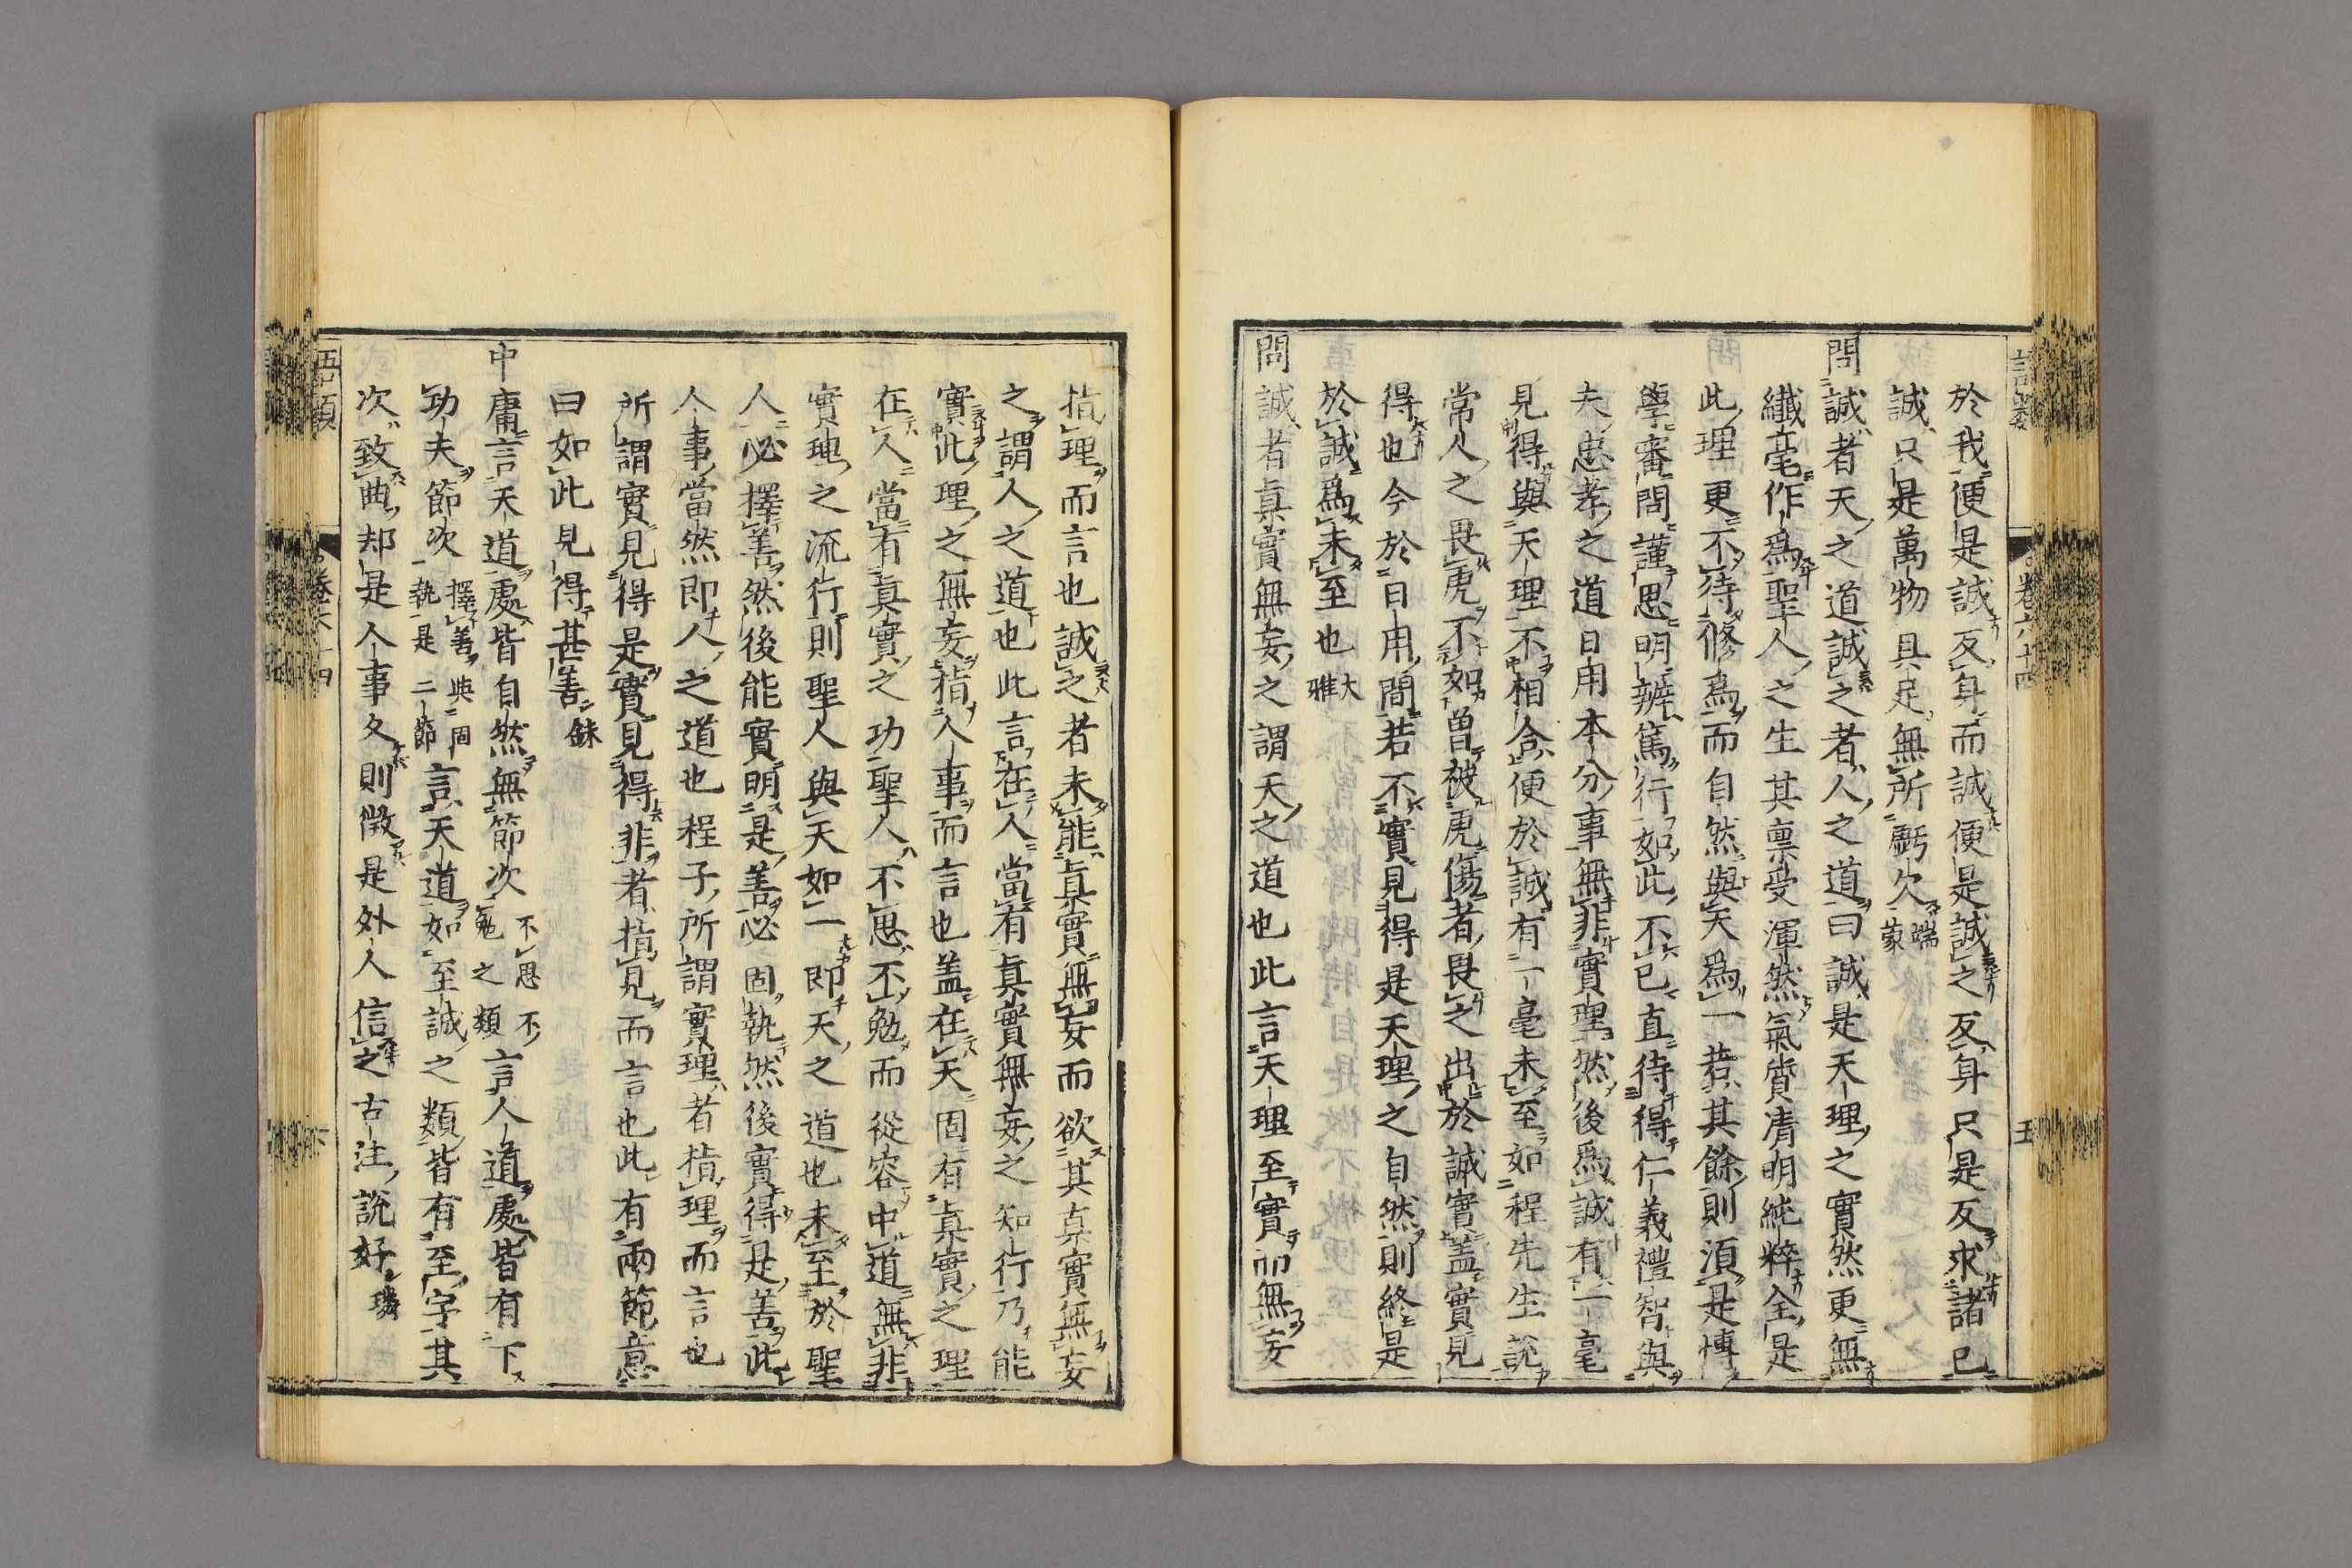 於我便是誠反身而誠便是誠之反身只是反求諸己
誠只是萬物具足無所虧欠端蒙
問誠者天之道誠之者人之道曰誠是天理之實然更無
纖毫作爲聖人之生其禀受渾然氣質清明純粹全是
此理更不待修爲而自然與天爲一若其餘則須是博
學審問謹思明辨篤行如此不已直待得仁義禮智與
夫忠孝之道日用本分事無非實理然後爲誠有一毫
見得與天理不相合便於誠有一毫未至如程先生說
常人之畏虎不如曾被虎傷者畏之出於誠實蓋實見
得也今於日用間若不實見得是天理之自然則終是
於誠爲未至也大雅
問誠者眞實無妄之謂天之道也此言天理至實而無妄
指理而言也誠之者未能眞實無妄而欲其眞實無妄
之謂人之道也此言在人當有眞實無妄之知行乃能
實此理之無妄指人事而言也盖在天固有眞實之理
在人當有眞實之功聖人不思不勉而從容中道無非
實理之流行則聖人與天如一即天之道也未至於聖
人必擇善然後能實明是善必固執然後實得是善此
人事當然即人之道也程子所謂實理者指理而言也
所謂實見得是實見得非者指見而言也此有兩節意
曰如此見得甚善銖
中庸言天道處皆自然無節次不思不勉之類言人道處皆有下
功夫節次擇善與固執是二節言天道如至誠之類皆有至字其
次致曲却是人事久則徵是外人信之古注說好璘
語類
卷六十四
五